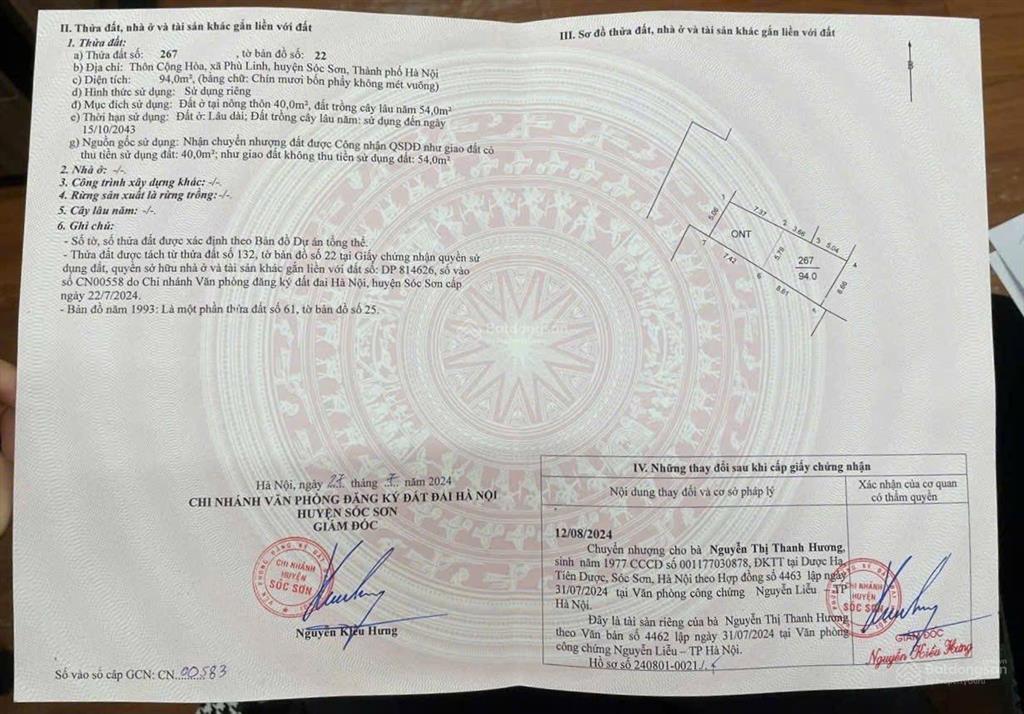 II. Thửa đất, nhà ở và tài sản khác gắn liền với đất
1. Thửa đất:
a) Thửa đất số: 267 , tờ bản đồ số: 22
b) Địa chỉ: Thôn Cộng Hòa, xã Phù Linh, huyện Sóc Sơn, Thành phố Hà Nội
c) Diện tích: 94,0m², (bằng chữ: Chín mươi bốn phẩy không mét vuông)
d) Hình thức sử dụng: Sử dụng riêng
đ) Mục đích sử dụng: Đất ở tại nông thôn 40,0m², đất trồng cây lâu năm 54,0m²
e) Thời hạn sử dụng: Đất ở: Lâu dài; Đất trồng cây lâu năm: sử dụng đến ngày
15/10/2043
g) Nguồn gốc sử dụng: Nhận chuyển nhượng đất được Công nhận QSDĐ như giao đất có
thu tiền sử dụng đất: 40,0m²; như giao đất không thu tiền sử dụng đất: 54,0m²
2. Nhà ở: -/-.
3. Công trình xây dựng khác: -/-.
4. Rừng sản xuất là rừng trồng: -/-.
5. Cây lâu năm: -/-.
6. Ghi chú:
- Số tờ, số thửa đất được xác định theo Bản đồ Dự án tổng thể.
- Thửa đất được tách từ thửa đất số 132, tờ bản đồ số 22 tại Giấy chứng nhận quyền sử
dụng đất, quyền sở hữu nhà ở và tài sản khác gắn liền với đất số: DP 814626, số vào
sổ CN00558 do Chi nhánh Văn phòng đăng ký đất đai Hà Nội, huyện Sóc Sơn cấp
ngày 22/7/2024.
- Bản đồ năm 1993: Là một phần thửa đất số 61, tờ bản đồ số 25.
Hà Nội, ngày tháng năm 2024
CHI NHÁNH VĂN PHÒNG ĐĂNG KÝ ĐẤT ĐAI HÀ NỘI
HUYỆN SÓC SƠN
GIÁM ĐỐC
CHI NHÁNH
HUYỆN
SÓC SƠN
Nguyễn Kiều Hưng
Số vào sổ cấp GCN: CN..00583
III. Sơ đồ thửa đất, nhà ở và tài sản khác gắn liền với đất
B
1
7.37
2
3.66
3
5.04
4
5.06
ONT
5.79
267
94.0
6.66
7
7.42
6
8.61
5
Batdongsan
IV. Những thay đổi sau khi cấp giấy chứng nhận
Nội dung thay đổi và cơ sở pháp lý
Xác nhận của cơ quan
có thẩm quyền
12/08/2024
Chuyển nhượng cho bà Nguyễn Thị Thanh Hương,
sinh năm 1977 CCCD số 001177030878, ĐKTT tại Dược Hạ,
Tiên Dược, Sóc Sơn, Hà Nội theo Hợp đồng số 4463 lập ngày
31/07/2024 tại Văn phòng công chứng Nguyễn Liễu – TP
Hà Nội.
Đây là tài sản riêng của bà Nguyễn Thị Thanh Hương
theo Văn bản số 4462 lập ngày 31/07/2024 tại Văn phòng
công chứng Nguyễn Liễu – TP Hà Nội.
Hồ sơ số 240801-0021
CHI NHÁNH
HUYỆN
SÓC SƠN
GIÁM ĐỐC
Nguyễn Kiều Hưng
Batdongsan